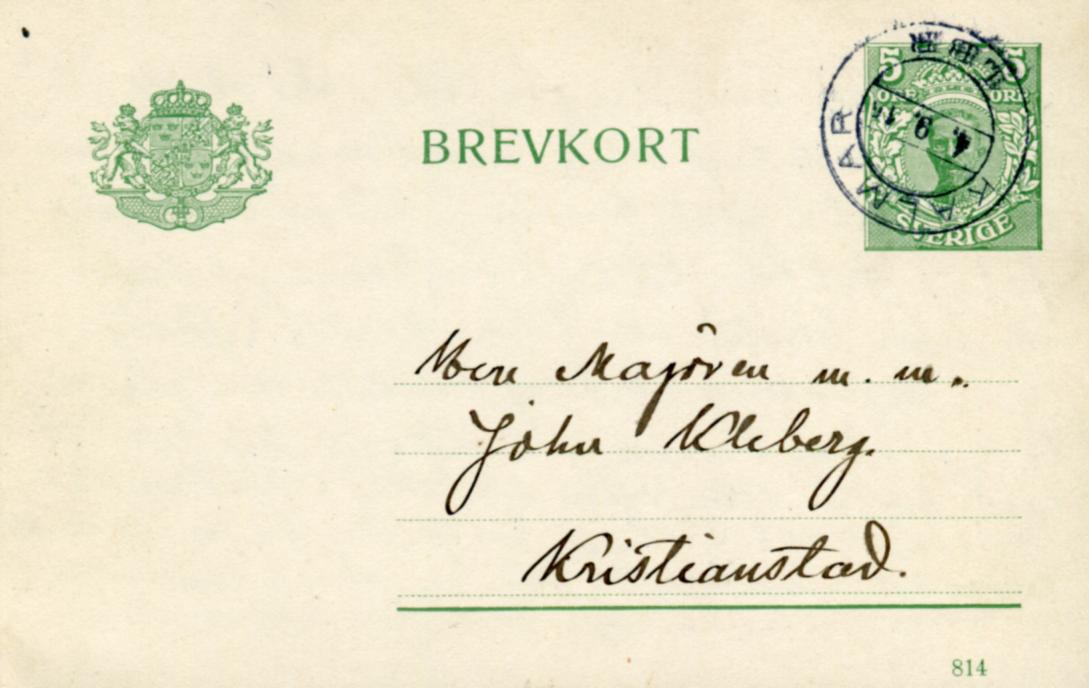 BREVKORT
5 5
ÖRE ÖRE
SVERIGE
KALMAR
4. 9. 14
Herr Majoren m. m.
John Kleberg.
Kristianstad.
814